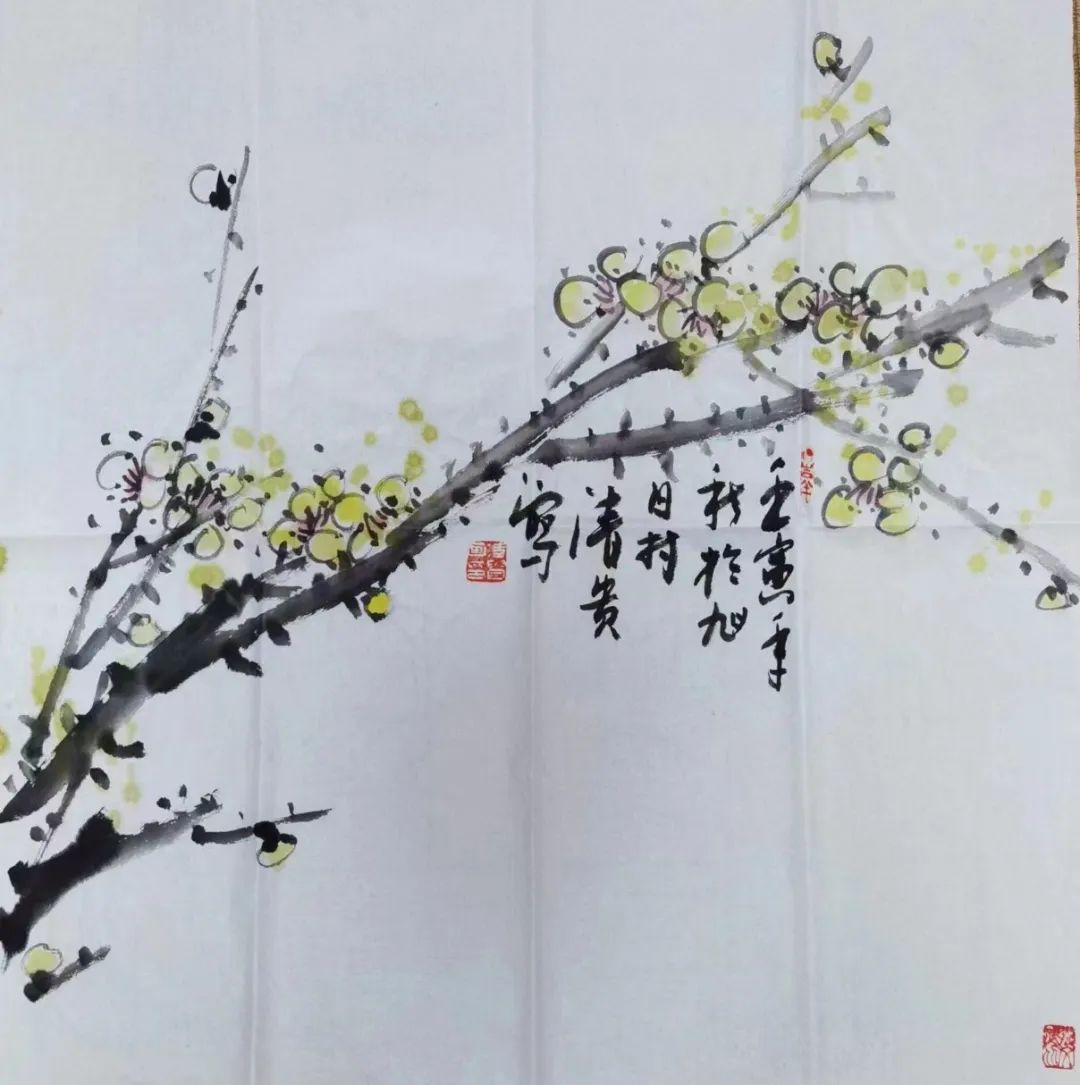 壬寅年
秋於旭
日村
清贵
写